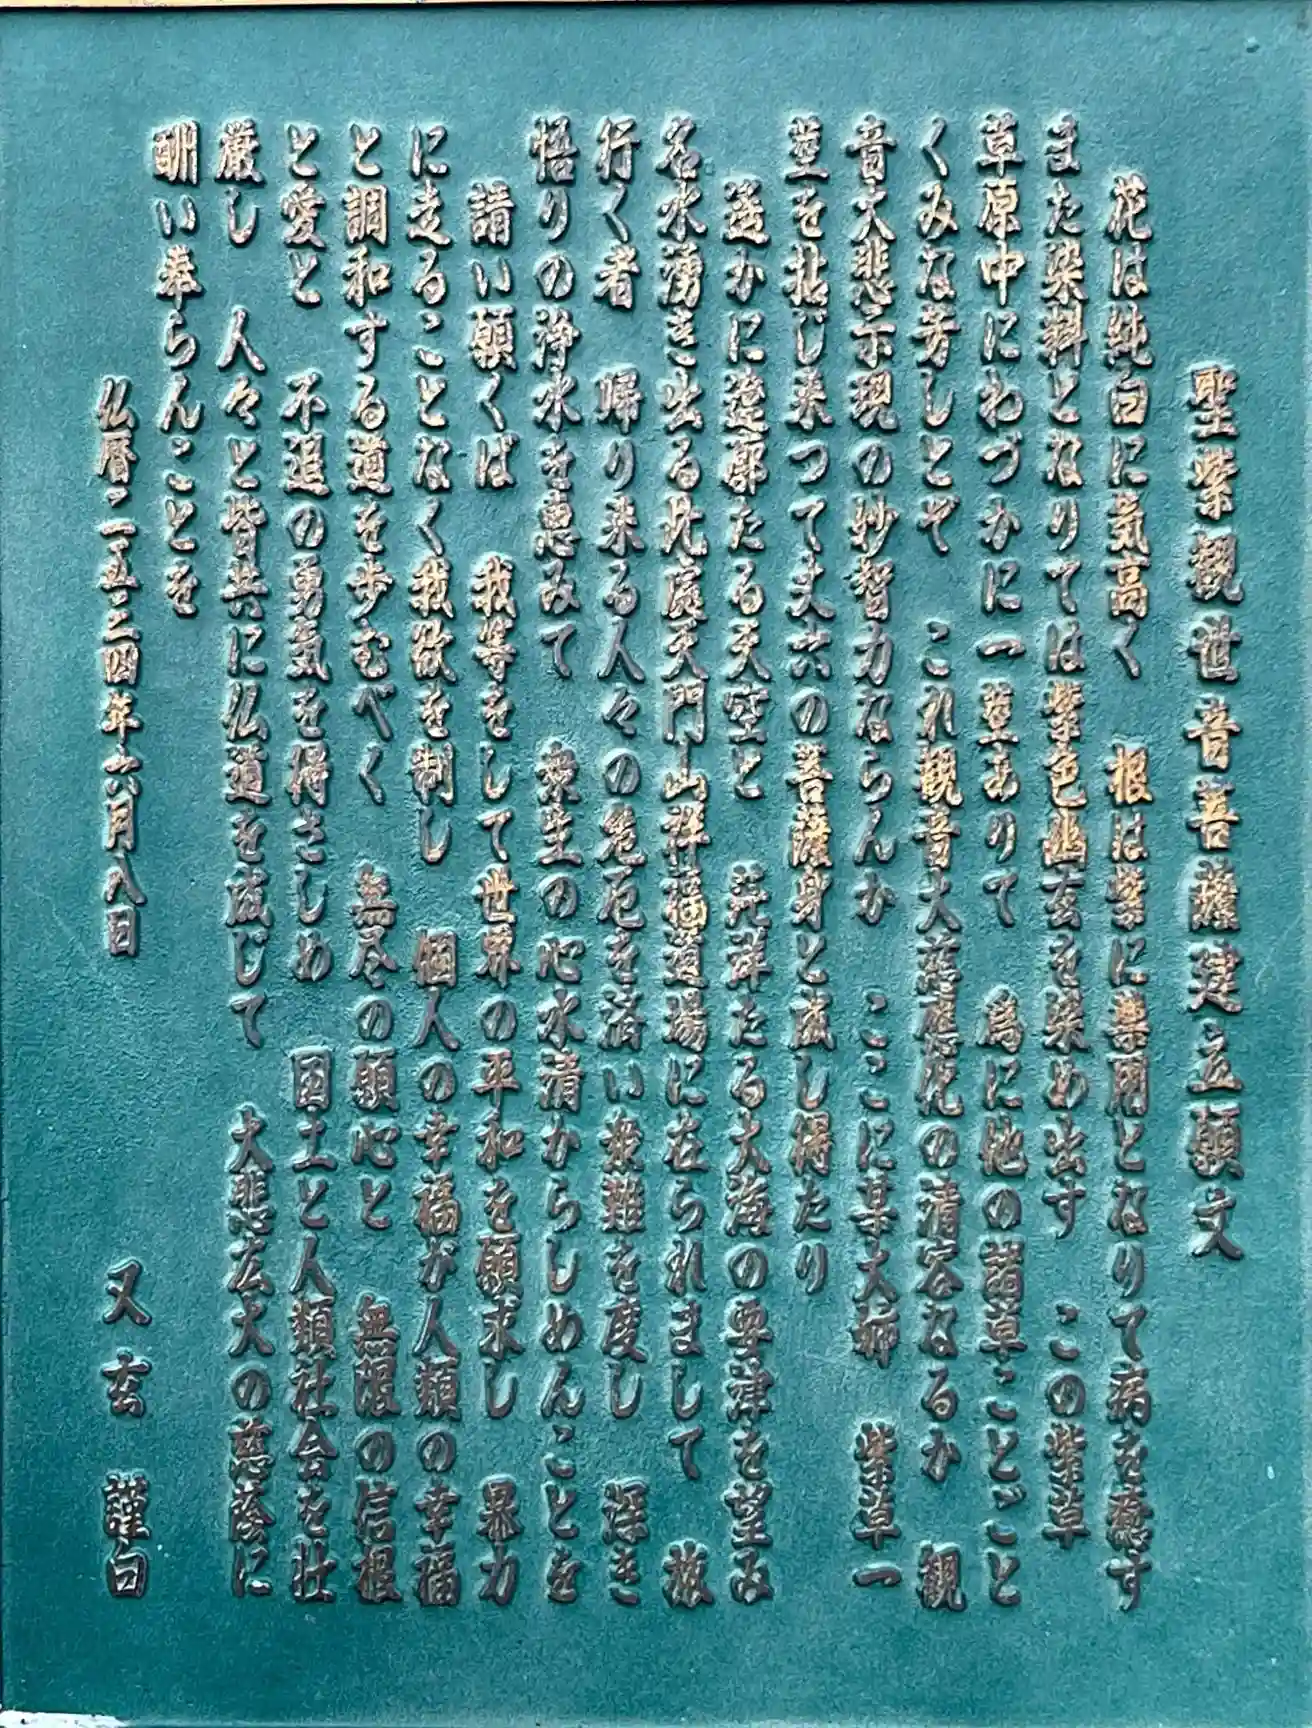 聖紫観世音菩薩建立願文
花は純白に気高く　根は紫に薬用となりて病を癒す
また染料となりては紫色幽玄を染め出す　この紫草
草原中にわづかに一茎ありて　為に他の諸草ことごと
くみな芳しとぞ　これ観音大薩埵花の清容なるか　観
音大悲示現の妙智力ならんか　ここに某大姉　紫草一
茎を拈じ来つて丈六の菩薩身と成し得たり
遥かに遼廓たる天空と　茫洋たる大海の要津を望み
名水湧き出る此處天門山祥福道場に在られまして　旅
行く者　帰り来る人々の危厄を済い衆難を度し　深き
悟りの浄水を恵みて　衆生の心水清からしめんことを
請い願くば　我等をして世界の平和を願求し　暴力
に走ることなく我欲を制し　個人の幸福が人類の幸福
と調和する道を歩むべく　無尽の願心と　無限の信根
と愛と　不退の勇気を得さしめ　国土と人類社会を壮
厳し　人々と皆共に仏道を成じて　大悲広大の慈蔭に
酬い奉らんことを
仏暦二五二四年六月八日　又玄　謹白